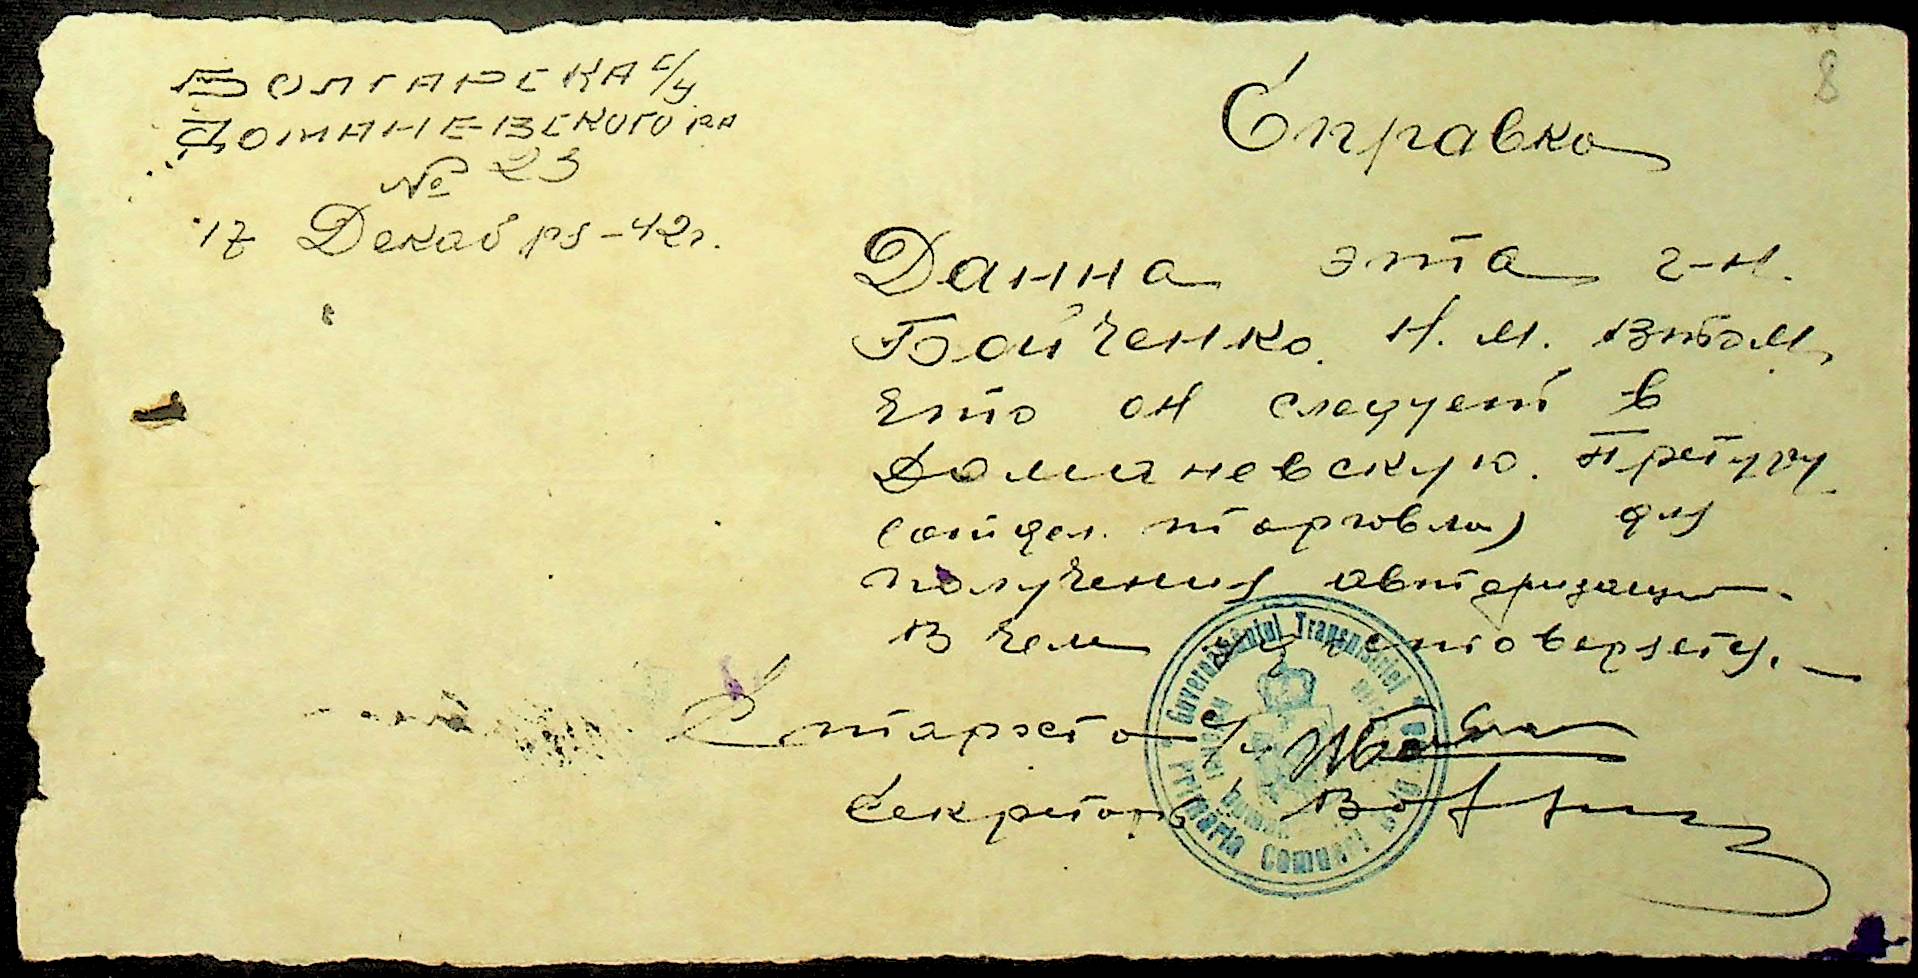 8
БОЛГАРСКА С/У
ДОМАНЕВСКОГО РА
№ 23
17 Декабря -42г.
Справка
Данна эта г-н.
Бойченко. Н. М. втом,
что он следует в
Доманевскую. Претуру
(отдел. торговли) для
получения авторизации.
В чем удостоверяету.
Староста с/у
Секретарь
Guvernământul Transnistriei
Primăria Comunei